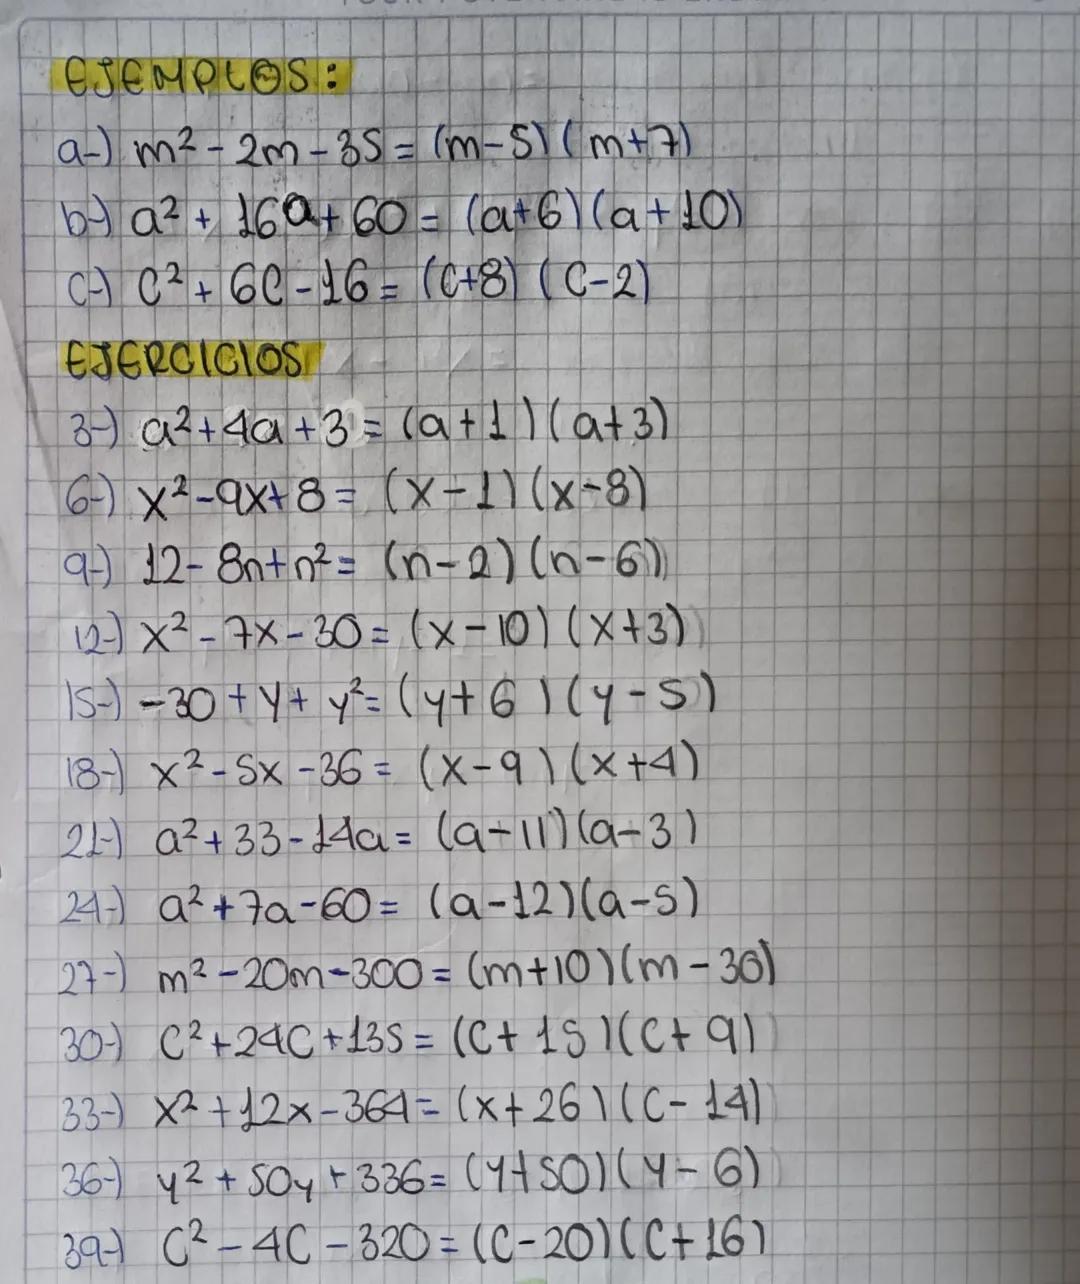 EJEMPLOS:
a-) m² - 2m - 35 = (m-5) (m+7)
b-) a² + 16a + 60 = (a+6) (a+10)
c-) C² + 6C - 16 = (C+8) (C-2)
EJERCICIOS
3-) a² + 4a + 3 = (a+1) (a+3)
6-) x² - 9x + 8 = (x-1) (x-8)
9-) 12 - 8n + n² = (n-2) (n-6)
12-) x² - 7x - 30 = (x-10) (x+3)
15-) -30 + y + y² = (y+6) (y-5)
18-) x² - 5x - 36 = (x-9) (x+4)
21-) a² + 33 - 14a = (a-11) (a-3)
24-) a² + 7a - 60 = (a-12) (a-5)
27-) m² - 20m - 300 = (m+10) (m-30)
30-) C² + 24C + 135 = (C+15) (C+9)
33-) x² + 12x - 364 = (x+26) (C-14)
36-) y² + 50y + 336 = (y+50) (y-6)
39-) C² - 4C - 320 = (C-20) (C+16)